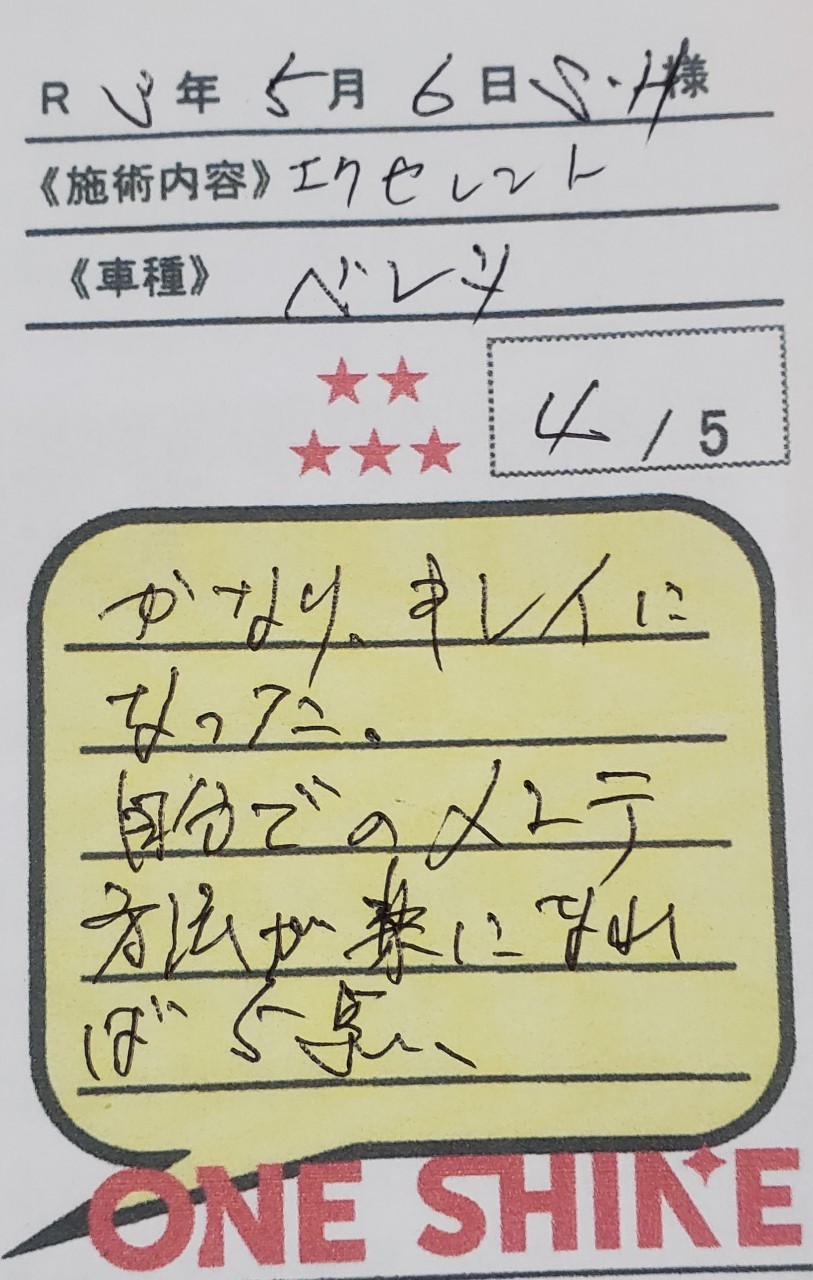 R 3年 5月 6日 S・H様
《施術内容》エクセレント
《車種》 ベンツ
4 / 5
かなり、キレイに
なった。
自分でのメンテ
方法が楽になれ
ば 5点、
ONE SHINE